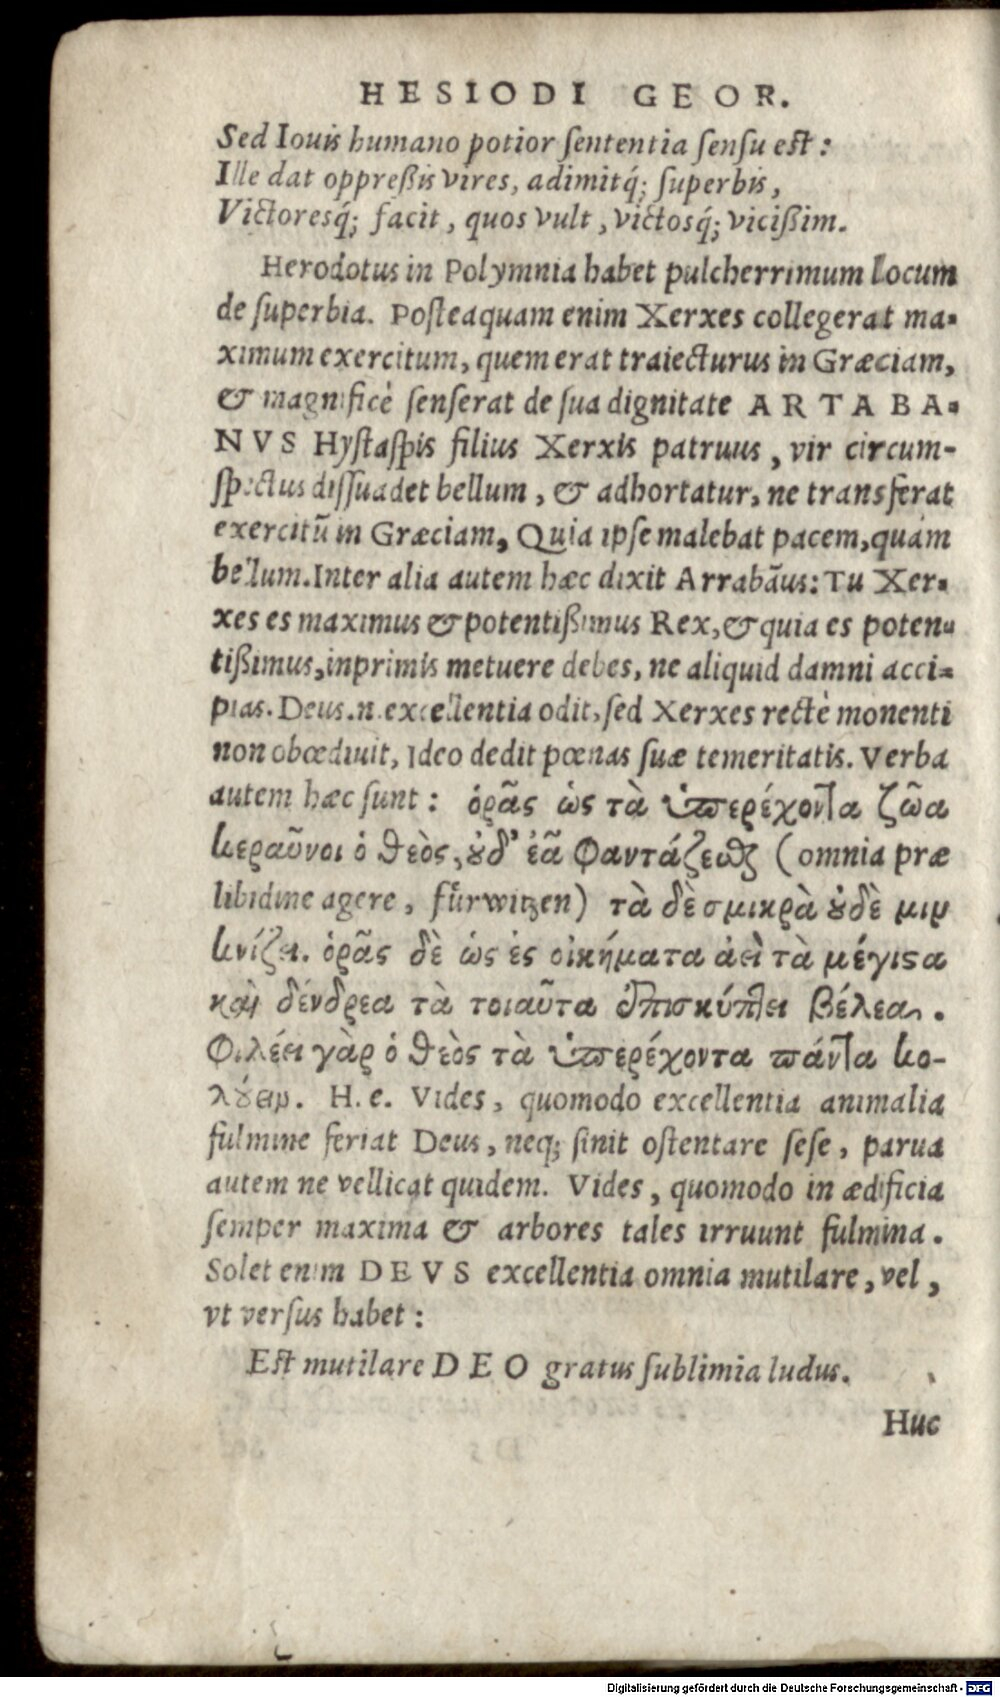 HESIODI GEOR.
Sed Iouis humano potior ſententia ſenſu eſt:
Ille dat oppreßis vires, adimitq́; ſuperbis,
Victoresq́; facit, quos vult, victosq́; vicißim.
Herodotus in Polymnia habet pulcherrimum locum
de ſuperbia. Poſteaquam enim Xerxes collegerat ma-
ximum exercitum, quem erat traiecturus in Græciam,
& magnificè ſenſerat de ſua dignitate ARTABA-
NVS Hyſtaſpis filius Xerxis patruus, vir circum-
ſpectus diſſuadet bellum, & adhortatur, ne transferat
exercitũ in Græciam, Quia ipſe malebat pacem, quàm
bellum. Inter alia autem hæc dixit Arrabãus: Tu Xer-
xes es maximus & potentißimus Rex, & quia es poten-
tißimus, inprimis metuere debes, ne aliquid damni acci-
pias. Deus .n. excellentia odit, ſed Xerxes rectè monenti
non obœdiuit, Ideo dedit pœnas ſuæ temeritatis. Verba
autem hæc ſunt: ὁρᾶς ὡς τὰ ὑπερέχοντα ζῶα
κεραῦνοι ὁ θεὸς, ȣδ' ἐᾶ φαντάζεσθαι (omnia præ
libidine agere, fürwitzen) τὰ δὲ σμικρὰ ȣδὲ μιν
κνίζει. ὁρᾶς δὲ ὡς ἐς οἰκήματα ἀεὶ τὰ μέγιϛα
καὶ δένδρεα τὰ τοιαῦτα ἐπισκύπτει βέλεα.
Φιλέει γὰρ ὁ θεὸς τὰ ὑπερέχοντα πάντα κο-
λȣ́ειν. H. e. Vides, quomodo excellentia animalia
fulmine feriat Deus, neq; ſinit oſtentare ſeſe, parua
autem ne vellicat quidem. Vides, quomodo in ædificia
ſemper maxima & arbores tales irruunt fulmina.
Solet enim DEVS excellentia omnia mutilare, vel,
vt verſus habet:
Eſt mutilare DEO gratus ſublimia ludus.
Huc
Digitalisierung gefördert durch die Deutsche Forschungsgemeinschaft - DFG